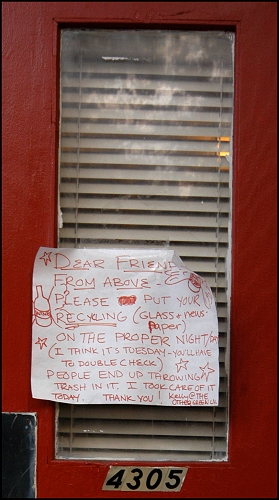 DEAR FRIEND
FROM ABOVE -
PLEASE PUT YOUR
RECYKLING (GLASS + NEWS-
PAPER)
ON THE PROPER NIGHT/DAY
(I THINK IT'S TUESDAY - YOU'LL HAVE
TO DOUBLE CHECK)
PEOPLE END UP THROWING
TRASH IN IT. I TOOK CARE OF IT
TODAY. THANK YOU! Kelly @ THE
OTHER
4305